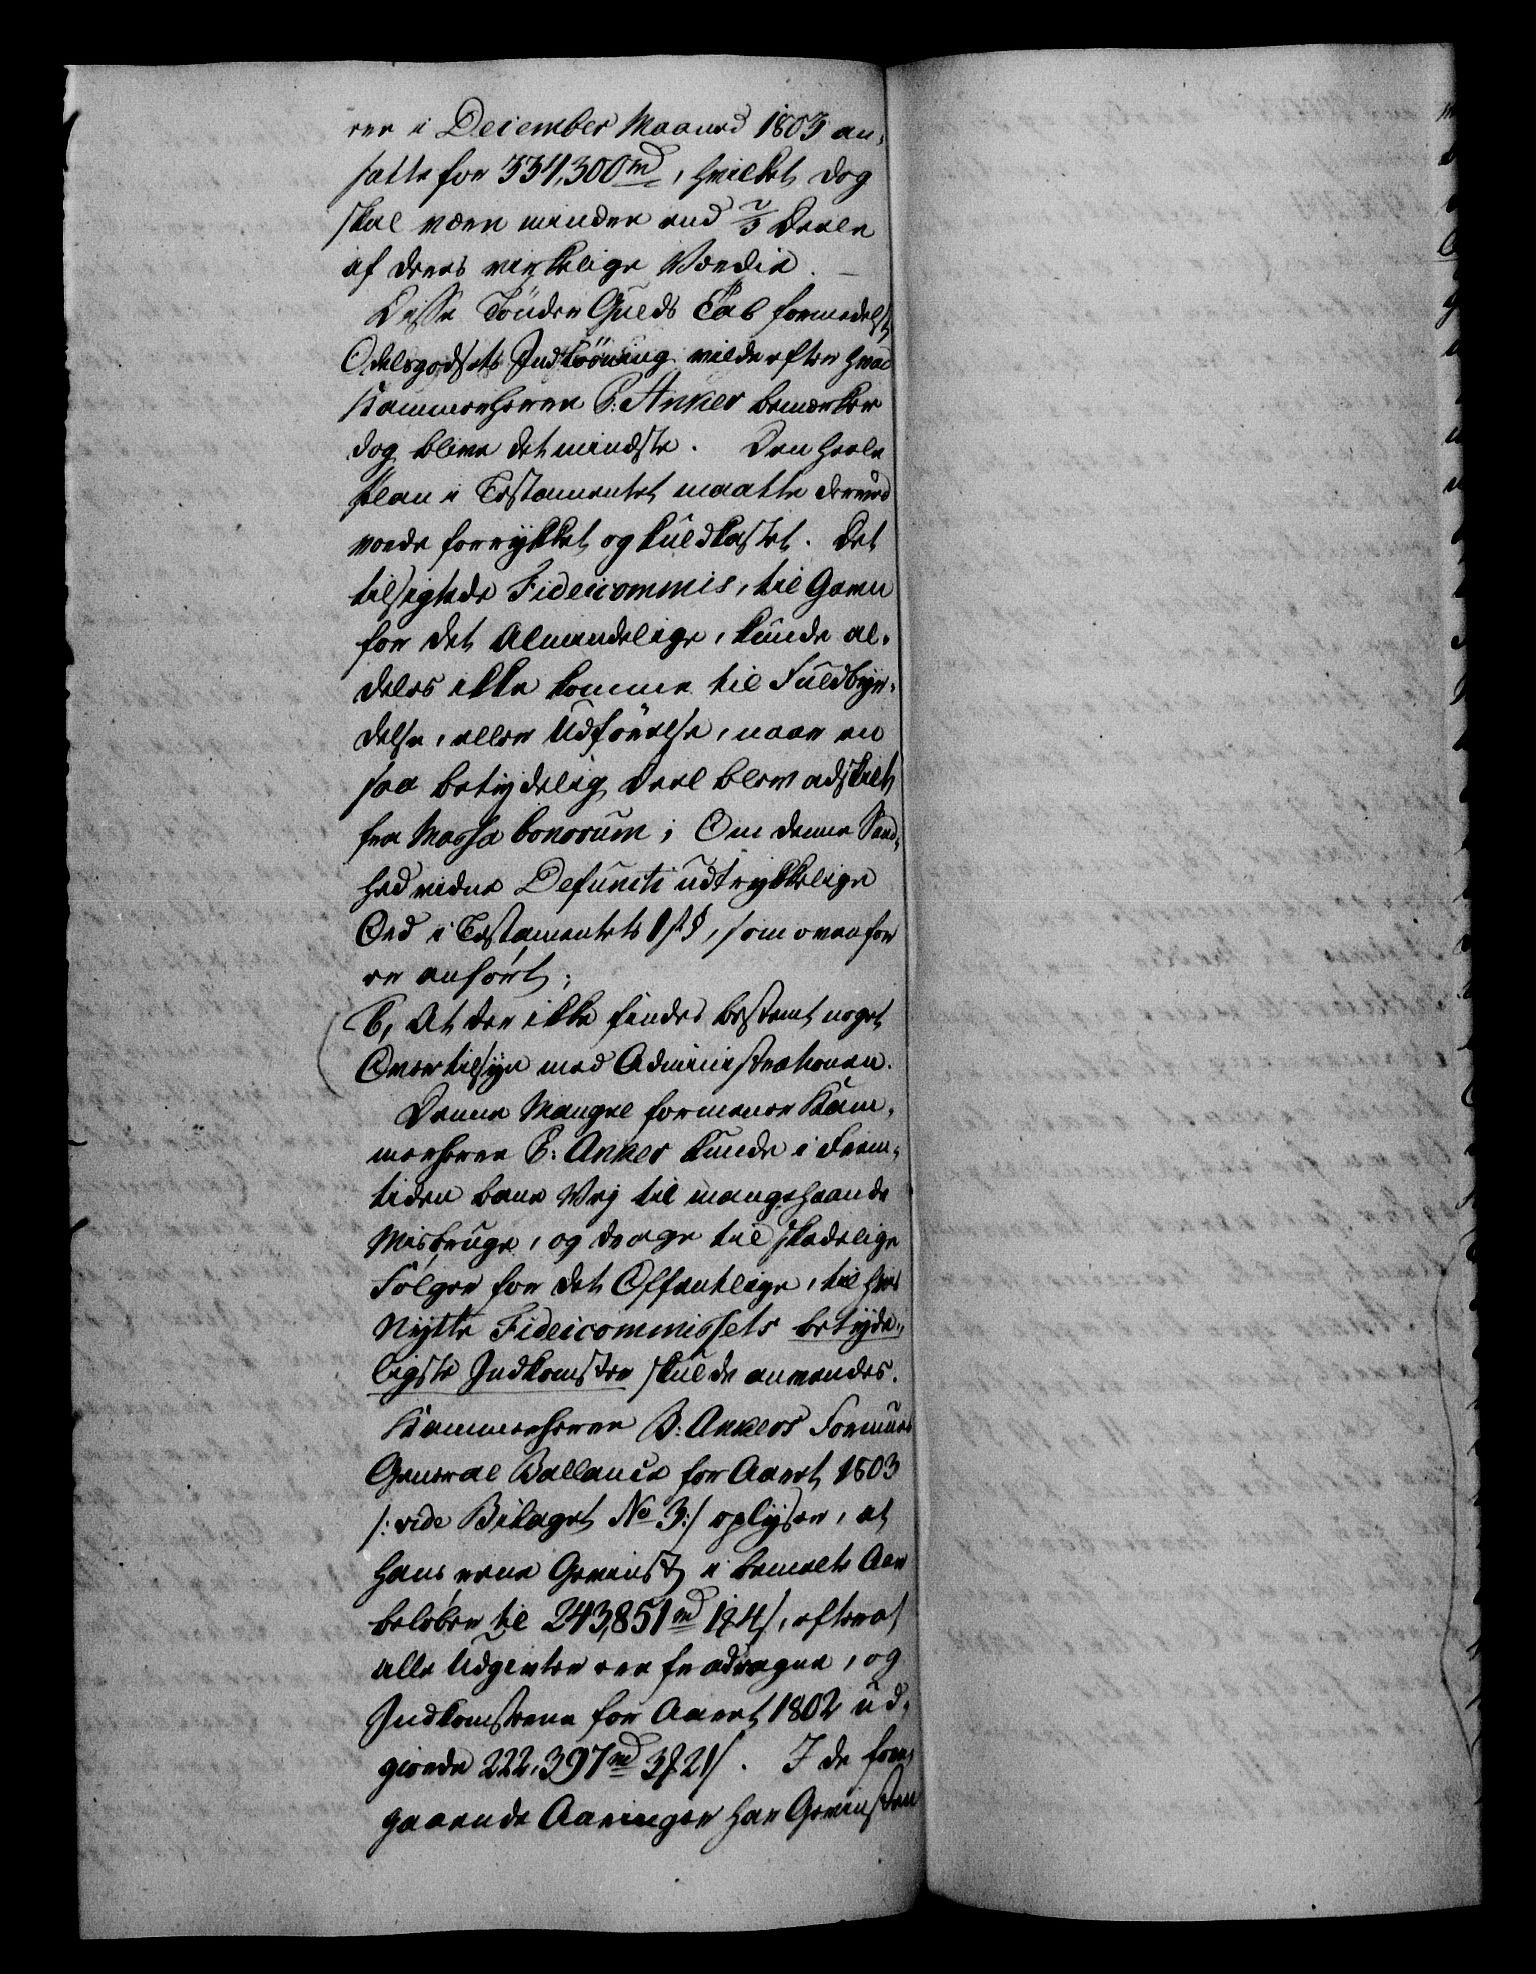 ere i December Maaned 1803 an-
satte for 334,300 rd, hvilket dog
skal være mindre end 2/3 Deele
af deres virkelige Værdie. —
Disse Tönder Gulds Tab formedelst
Odelsgodsets Indlösning vilde efter hvad
Kammerherre P: Anker bemærker
dog blive det mindste. Den heele
Plan i Testamentet maatte derved
vorde forrykket og kuldkastet. Det
tilsigtede Fideicommis, til Gavn
for det Almindelige, kunde al-
deles ikke komme til Fuldbyr-
delse, eller Udförelse, naar en
saa betydelig Deel blev adskilt
fra Massa bonorum; Om denne Sand-
hed vidne Defuncti udtrykkelige
Ord i Testamentets 1st §, som ovenfor
er anfört;
6, At der ikke findes bestemt noget
Overtilsyn med Administrationen.
Denne Mangel formener Kam-
merherre P: Anker kunde i Frem-
tiden bane Vej til mangehaande
Misbruge, og drage til skadelige
Fölger for det Offentlige, til hvis
Nytte Fideicommissets betyde-
ligste Indkomster skulde anvendes.
Kammerherre B: Ankers Formues
General Ballance for Aaret 1803
/: vide Bilaget No 3:/ oplyser, at
hans rene Gevinst i bemelte Aar
belöber til 243,851 rd 1 # 4 s, efterat
alle Udgivter ere fradragne, og
Indkomsterne for Aaret 1802 ud-
giorde 222,397 rd 3 # 21 s. I de fore-
gaaende Aaringer har Gevinsten